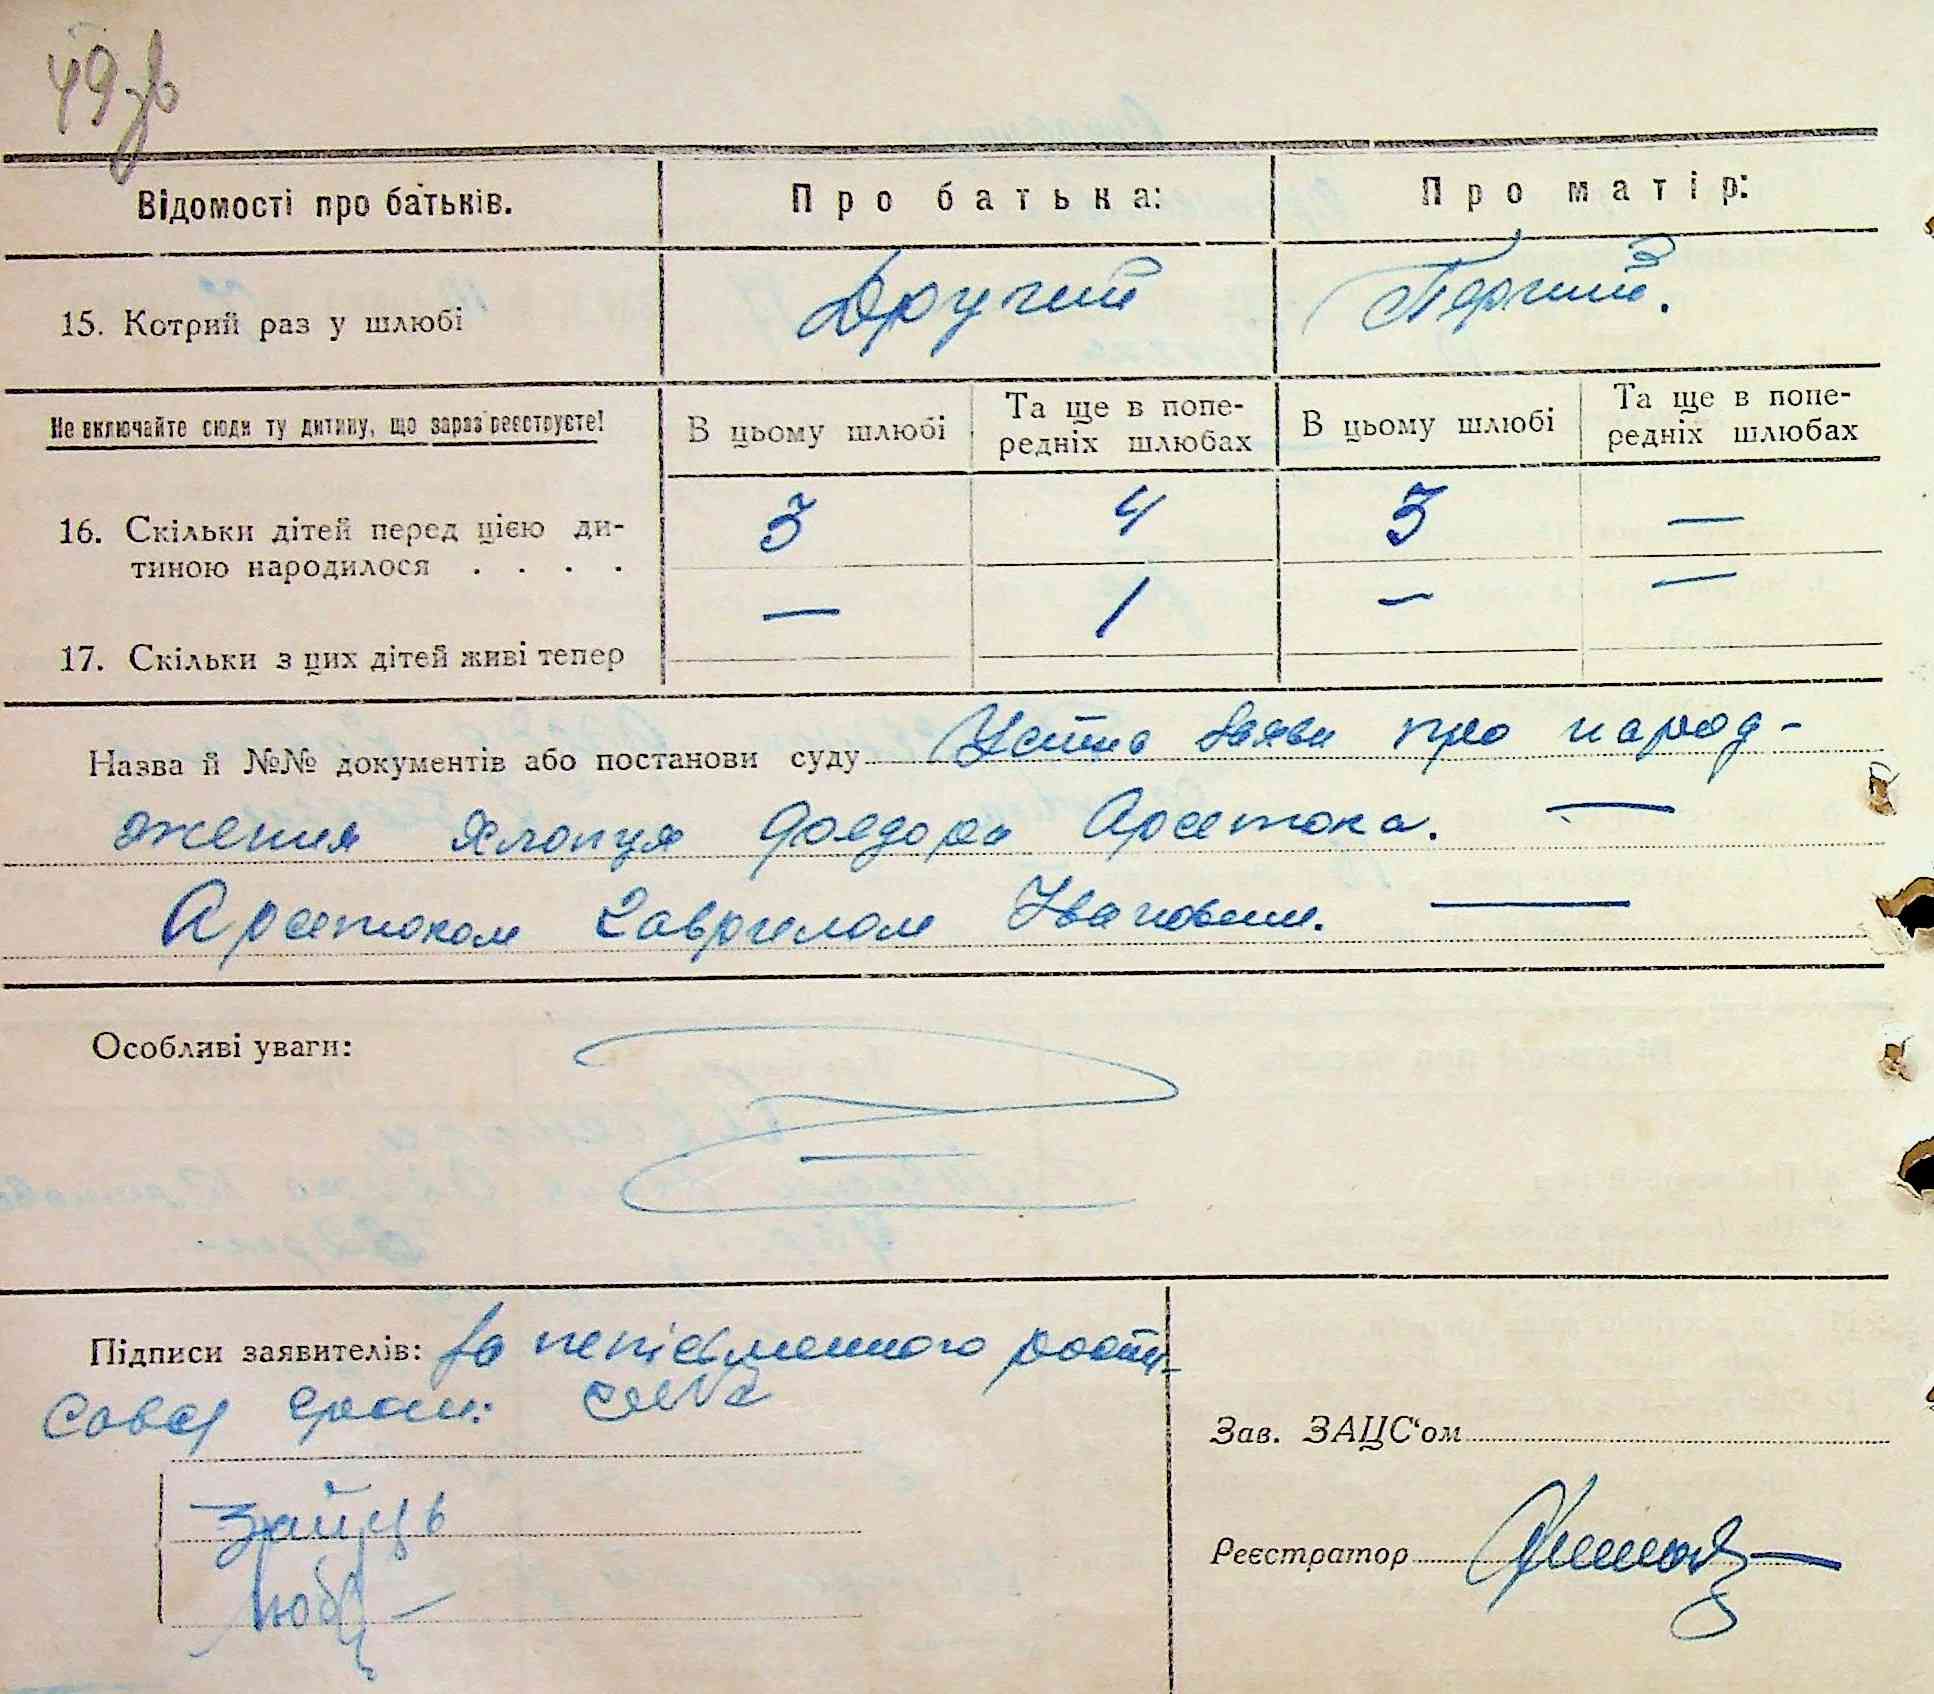 49 зв
Відомості про батьків. Про батька: Про матір:
15. Котрий раз у шлюбі Другий Перший.
Не включайте сюди ту дитину, що зараз реєструєте! В цьому шлюбі Та ще в попе- В цьому шлюбі Та ще в попе-
редніх шлюбах редніх шлюбах
16. Скільки дітей перед цією ди- 3 4 3 —
тиною народилося . . . .
17. Скільки з цих дітей живі тепер — 1 — —
Назва й №№ документів або постанови суду Устна заява про народ-
ження хлопця Федора
Гаврилом Івановим. —
Особливі уваги:
Підписи заявителів: За неписьменного розпи-
сався
Зав. ЗАЦС'ом
Заїць
Реєстратор
Люба —